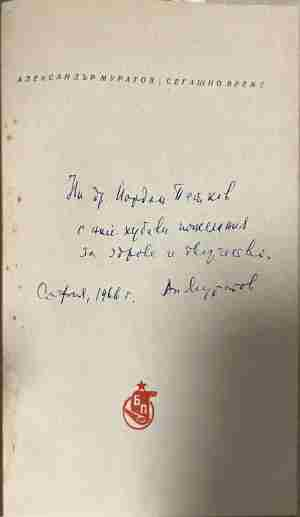 АЛЕКСАНДЪР МУРАТОВ / СЕГАШНО ВРЕМЕ
На др Йордан Петков
с най хубави пожелания
за здраве и творчество.
София, 1966 г. Ал Муратов
БП